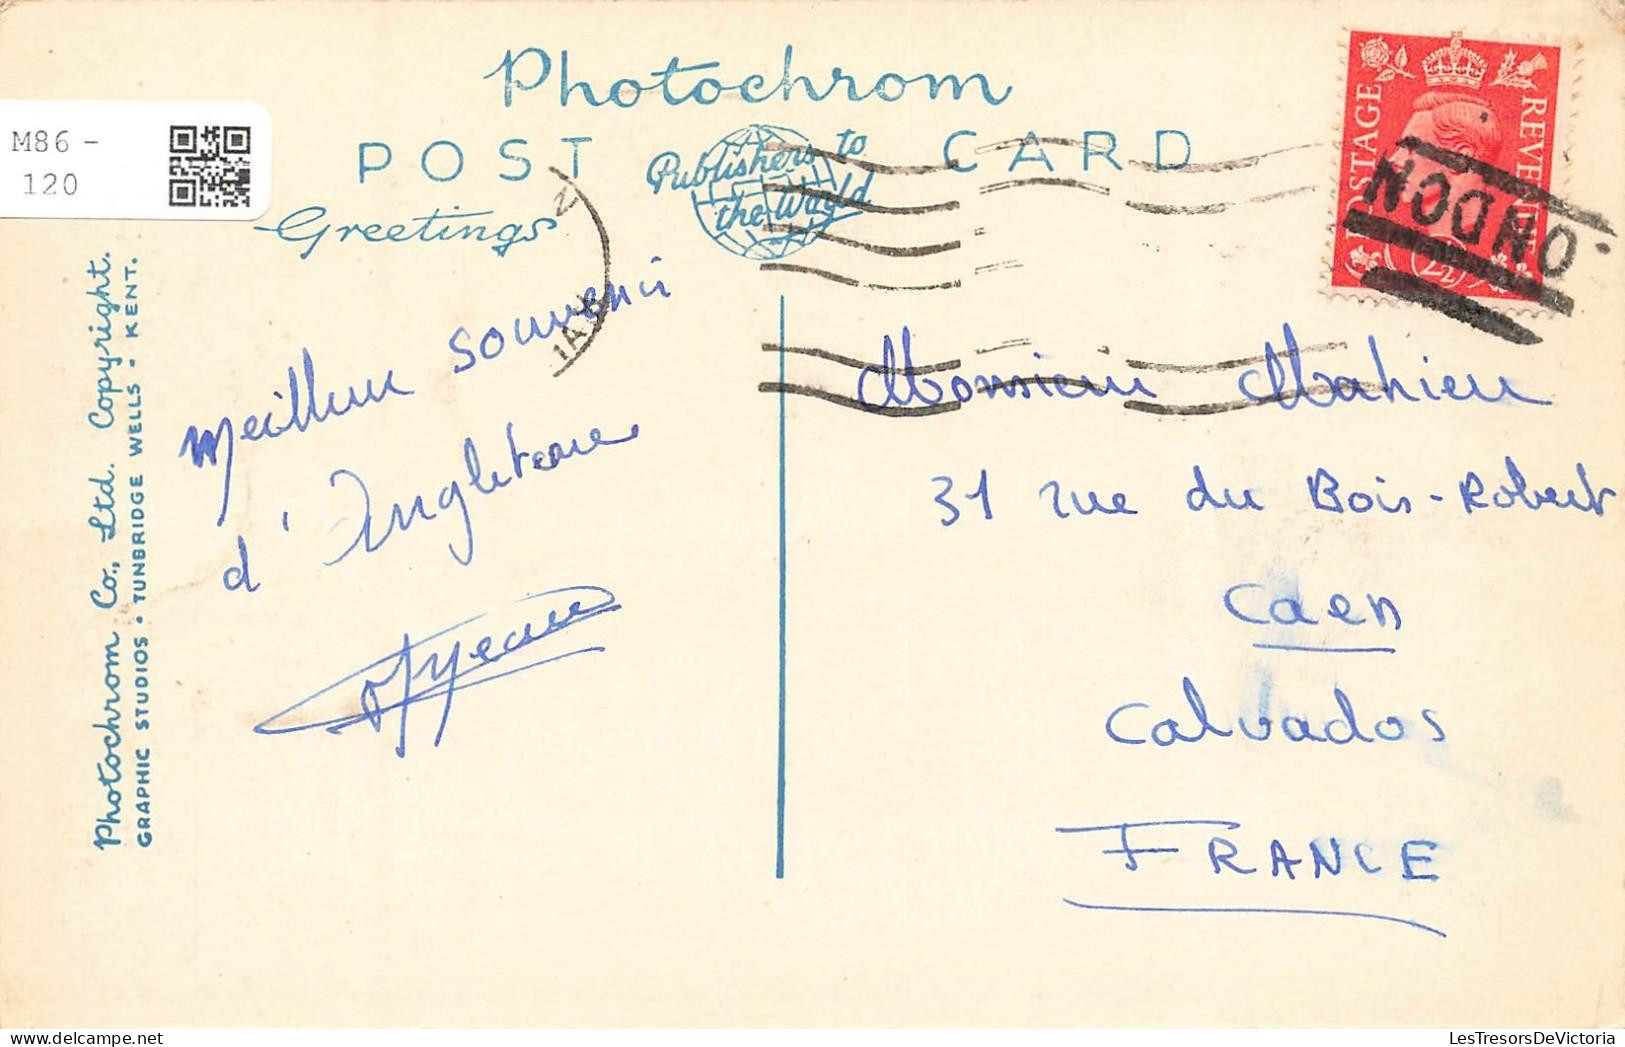 Photochrom
POST CARD
Publishers to
the World
Greetings
M86 -
120
POSTAGE
REVENUE
2½
LONDON
Photochrom Co., Ltd. Copyright.
GRAPHIC STUDIOS • TUNBRIDGE WELLS • KENT.
Meilleur souvenir
d'Angleterre
Monsieur Mahieu
31 rue du Bois-Robert
Caen
Calvados
FRANCE
LesTresorsDeVictoria.com